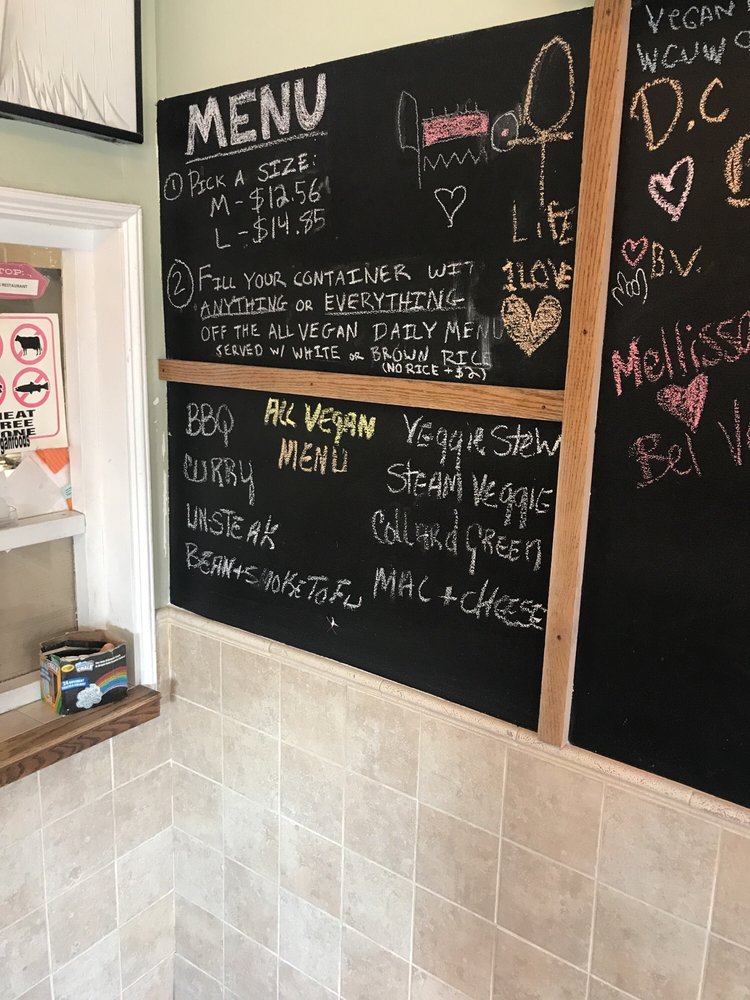 MENU
① PICK A SIZE:
M - $12.56
L - $14.85
② FILL YOUR CONTAINER WIT
ANYTHING OR EVERYTHING
OFF THE ALL VEGAN DAILY MENU
SERVED W/ WHITE OR BROWN RICE
(NO RICE + $2)
LIFE
1LOVE
ALL VEGAN
MENU
BBQ
CURRY
UN-STEAK
BEAN + SMOKE TOFU
VEGGIE STEW
STEAM VEGGIE
COLLARD GREEN
MAC + CHEESE
VEGAN
WCUW
D.C
B.V.
Mellissa
Bel
TOP:
RESTAURANT
EAT
REE
CHALK